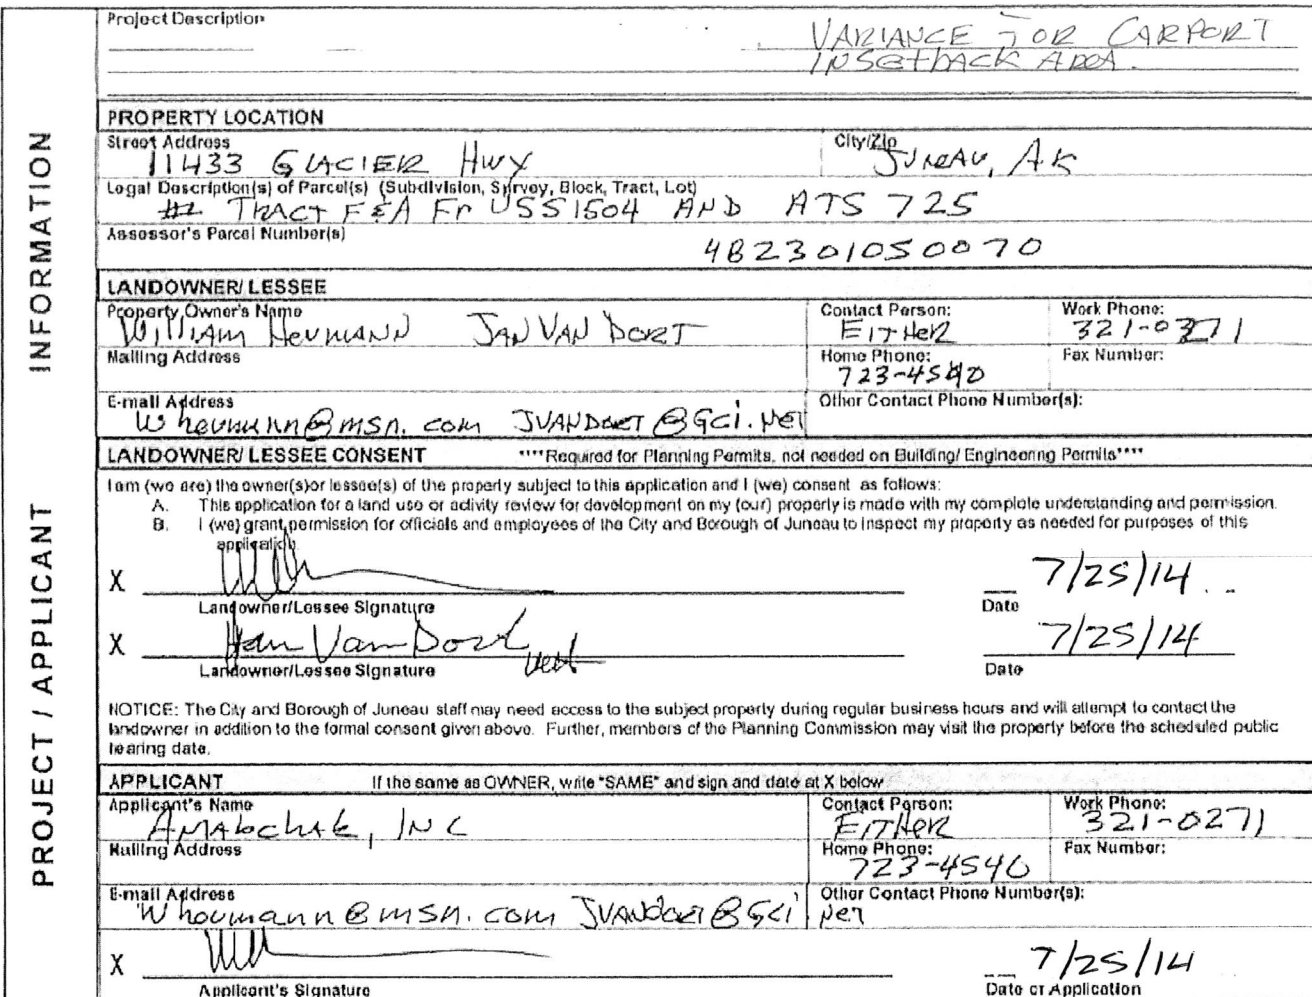 Project Description
VARIANCE FOR CARPORT
IN SetBACK AREA.
PROPERTY LOCATION
Street Address
11433 GLACIER HWY
City/Zip
JUNEAU, AK
Legal Description(s) of Parcel(s) (Subdivision, Survey, Block, Tract, Lot)
TRACT F & A Fr USS 1504 AND ATS 725
Assessor's Parcel Number(s)
4B2301050070
LANDOWNER/ LESSEE
Property Owner's Name
WILLIAM HEUMANN JAN VAN DORT
Contact Person:
EITHER
Work Phone:
321-0271
Mailing Address
Home Phone:
723-4540
Fax Number:
E-mail Address
Wheumann@msn.com JVANDORT@GCI.NET
Other Contact Phone Number(s):
LANDOWNER/ LESSEE CONSENT ****Required for Planning Permits, not needed on Building/ Engineering Permits****
I am (we are) the owner(s)or lessee(s) of the property subject to this application and I (we) consent as follows:
A. This application for a land use or activity review for development on my (our) property is made with my complete understanding and permission.
B. I (we) grant permission for officials and employees of the City and Borough of Juneau to inspect my property as needed for purposes of this
application.
X
7/25/14
Landowner/Lessee Signature
Date
X Jan Van Dort
7/25/14
Landowner/Lessee Signature
Date
NOTICE: The City and Borough of Juneau staff may need access to the subject property during regular business hours and will attempt to contact the
landowner in addition to the formal consent given above. Further, members of the Planning Commission may visit the property before the scheduled public
hearing date.
APPLICANT If the same as OWNER, write "SAME" and sign and date at X below
Applicant's Name
INC
Contact Person:
EITHER
Work Phone:
321-0271
Mailing Address
Home Phone:
723-4540
Fax Number:
E-mail Address
Wheumann@msn.com JVANDORT@GCI.NET
Other Contact Phone Number(s):
X
7/25/14
Applicant's Signature
Date of Application
PROJECT / APPLICANT INFORMATION